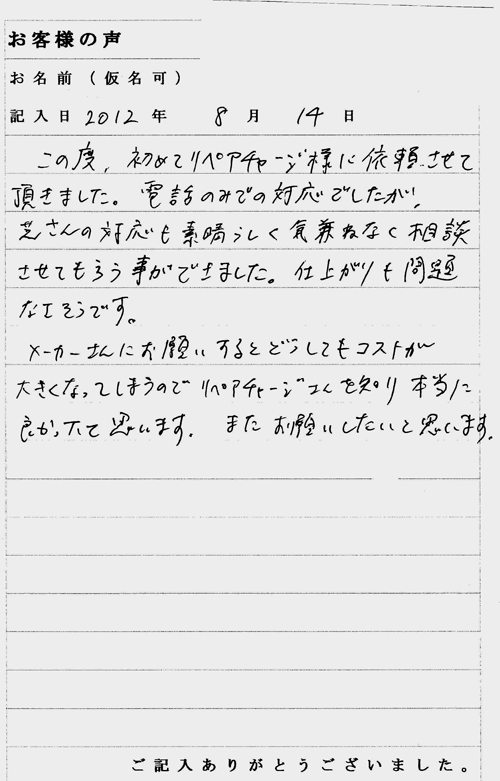 お客様の声
お名前(仮名可)
記入日 2012 年 8 月 14 日
この度、初めてリペアチャージ様に依頼させて
頂きました。電話のみでの対応でしたが、
芝さんの対応も素晴らしく気兼ねなく相談
させてもらう事ができました。仕上がりも問題
なさそうです。
メーカーさんにお願いするとどうしてもコストが
大きくなってしまうのでリペアチャージさんを知り本当に
良かったと思います。またお願いしたいと思います。
ご記入ありがとうございました。